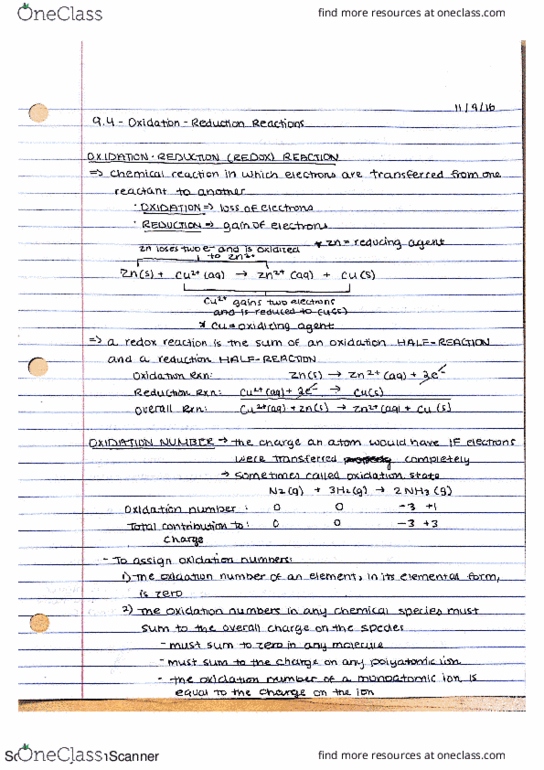 OneClass
find more resources at oneclass.com
11/9/16
9.4 - Oxidation - Reduction Reactions
OXIDATION-REDUCTION (REDOX) REACTION
⇒ chemical reaction in which electrons are transferred from one
reactant to another
· OXIDATION ⇒ loss of electrons
· REDUCTION ⇒ gain of electrons
Zn loses two e⁻ and is oxidized
to Zn²⁺
* Zn = reducing agent
Zn(s) + Cu²⁺(aq) → Zn²⁺(aq) + Cu(s)
Cu²⁺ gains two electrons
and is reduced to Cu(s)
* Cu = oxidizing agent
⇒ a redox reaction is the sum of an oxidation HALF-REACTION
and a reduction HALF-REACTION
Oxidation rxn: Zn(s) → Zn²⁺(aq) + 2e⁻
Reduction rxn: Cu²⁺(aq) + 2e⁻ → Cu(s)
Overall Rxn: Cu²⁺(aq) + Zn(s) → Zn²⁺(aq) + Cu(s)
OXIDATION NUMBER → the charge an atom would have IF electrons
were transferred completely
→ sometimes called oxidation state
N₂(g) + 3H₂(g) → 2NH₃(g)
Oxidation number: 0 0 -3 +1
Total contribution to: 0 0 -3 +3
charge
- To assign oxidation numbers:
1) the oxidation number of an element, in its elemental form,
is zero
2) the oxidation numbers in any chemical species must
sum to the overall charge on the species
- must sum to zero in any molecule
- must sum to the charge on any polyatomic ion
- the oxidation number of a monoatomic ion is
equal to the charge on the ion
OneClass
Scanner
find more resources at oneclass.com